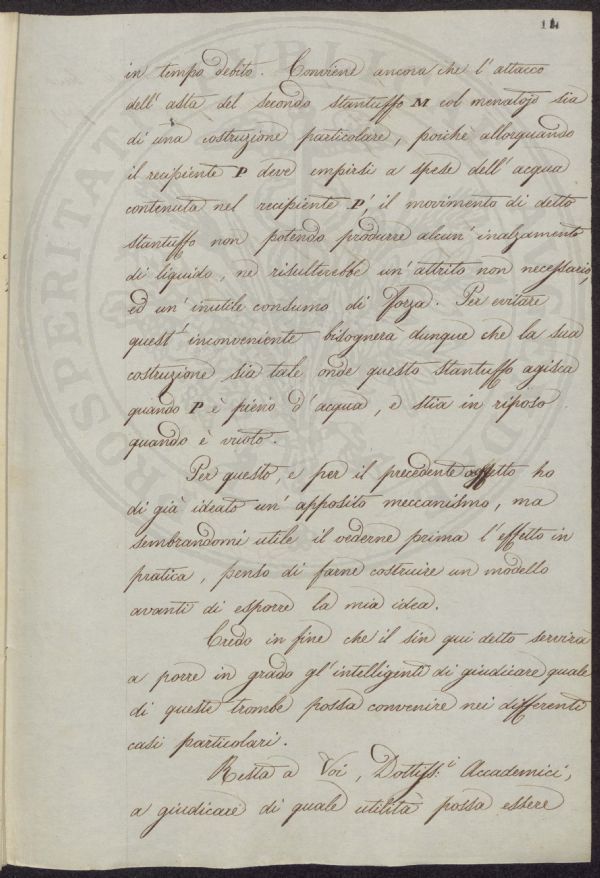 14
in tempo debito. Conviene ancora che l'attacco
dell'asta del secondo stantuffo M col menatojo sia
di una costruzione particolare, poichè allorquando
il recipiente P deve empirsi a spese dell'acqua
contenuta nel recipiente P', il movimento di detto
stantuffo non potendo produrre alcun'inalzamento
di liquido, ne risulterebbe un'attrito non necessario,
ed un'inutile consumo di forza. Per evitare
quest'inconveniente bisognerà dunque che la sua
costruzione sia tale onde questo stantuffo agisca
quando P è pieno d'acqua, e stia in riposo
quando è vuoto.
Per questo, e per il precedente oggetto ho
di già ideato un'apposito meccanismo, ma
sembrandomi utile il vederne prima l'effetto in
pratica, penso di farne costruire un modello
avanti di esporre la mia idea.
Credo in fine che il sin qui detto servirà
a porre in grado gl'intelligenti di giudicare quale
di queste trombe possa convenire nei differenti
casi particolari.
Resta a Voi, Dottiss:i Accademici,
a giudicare di quale utilità possa essere